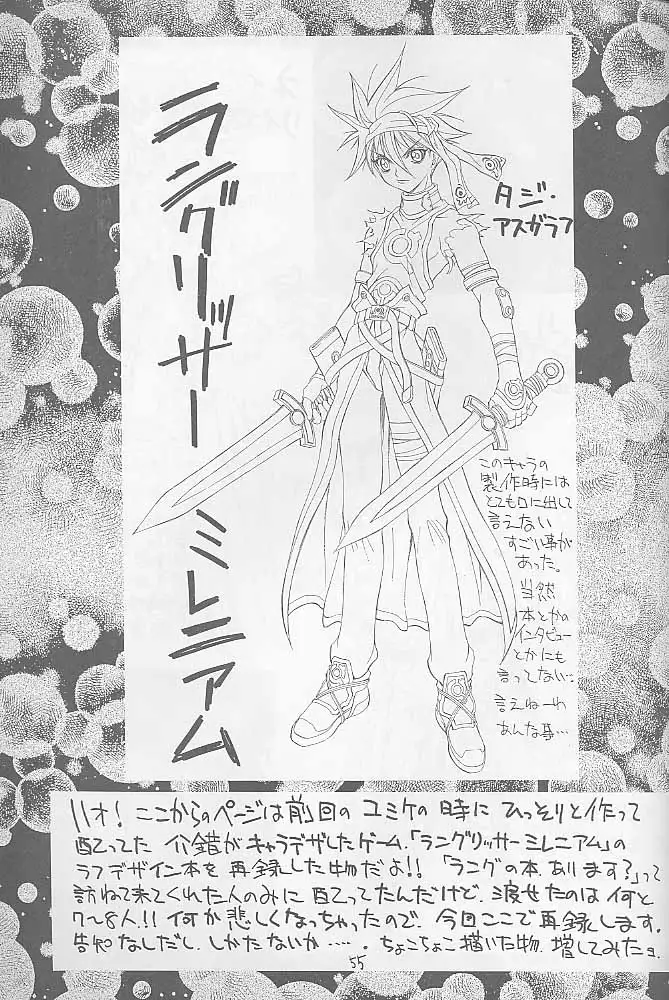 ラングリッサー ミレニアム
タジ・
アスガラフ
このキャラの
製作時には
とても口に出して
言えない
すごい事が
あった。
当然
本とかの
インタビュー
とかにも
言ってない…
言えねーわ
あんな事…
ハオ! ここからのページは前回のコミケの時に ひっそりと作って
配ってた 介錯がキャラデザしたゲーム「ラングリッサー ミレニアム」の
ラフデザイン本を再録した物だよ!! 「ラングの本、あります?」って
訪ねて来てくれた人のみに配ってたんだけど、渡せたのは何と
7〜8人!! 何か悲しくなっちゃったので、今回ここで再録します。
告知なしだし、しかたないか……。ちょこちょこ描いた物、増してみたョ
55